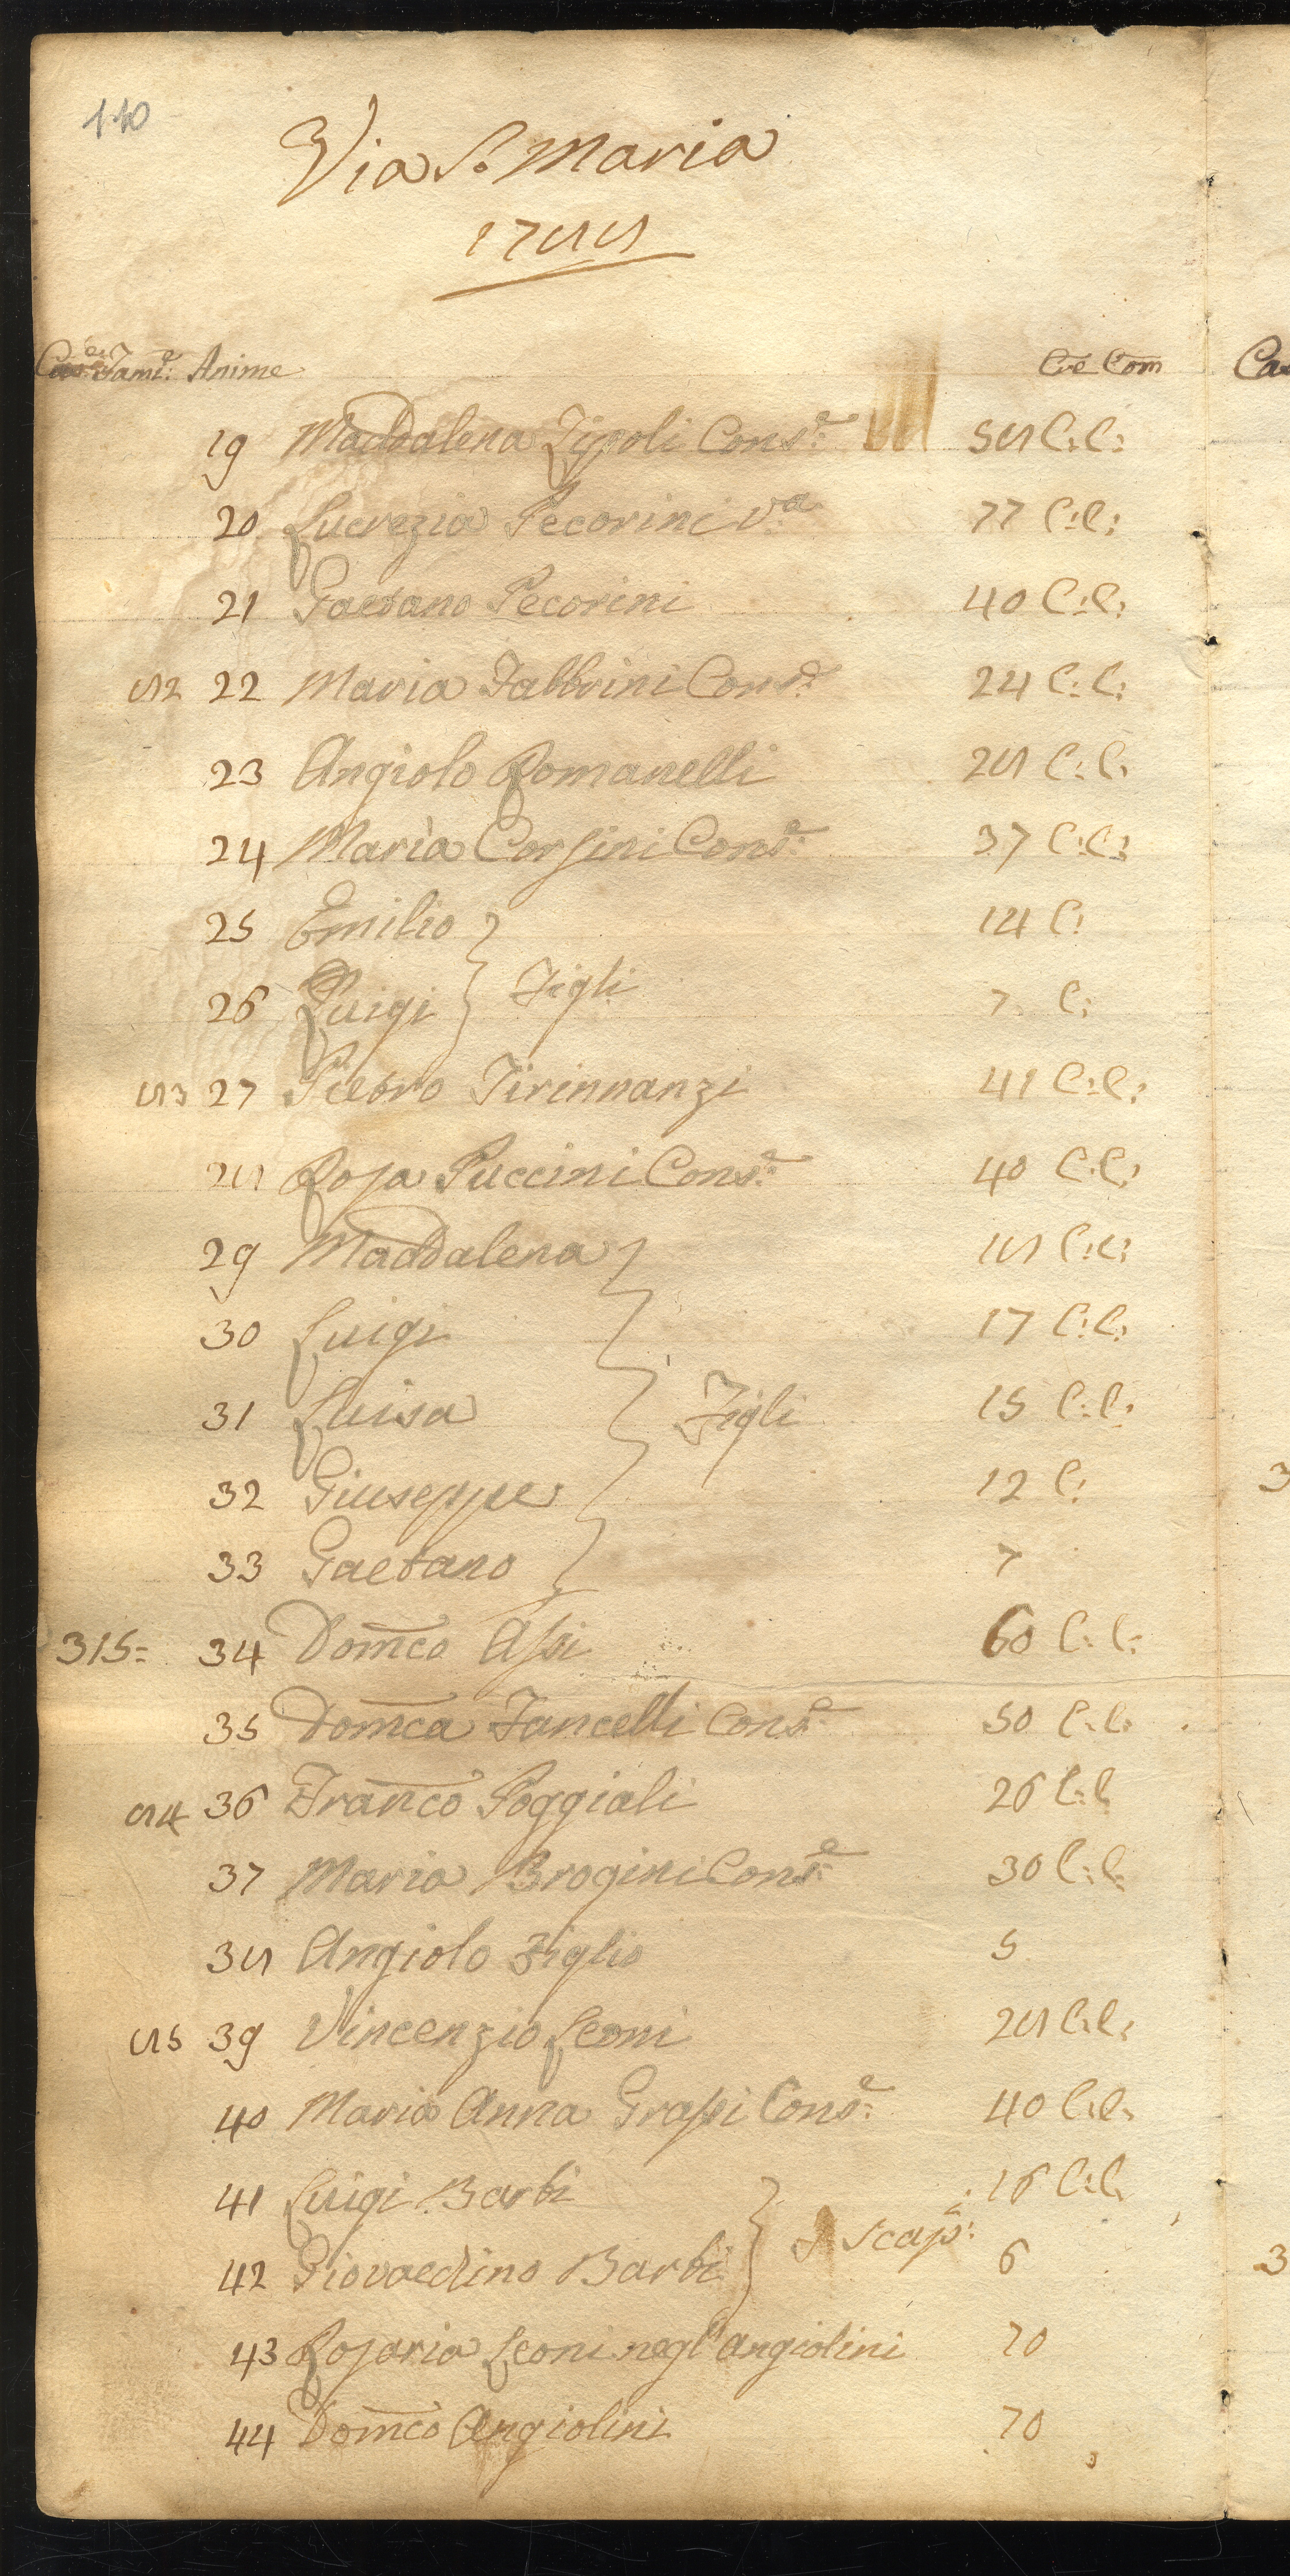 110
Via S. Maria
1788
Case Fam:e Anime Cre Com
19 Maddalena Zipoli Cons:e 58 C:C:
20 Lucrezia Pecorini V:a 77 C:C:
21 Gaetano Pecorini 40 C:C:
82 22 Maria Fabbrini Cons:e 24 C:C:
23 Angiolo Romanelli 28 C:C:
24 Maria Corsini Cons:e 37 C:C:
25 Emilio 14 C:
26 Luigi } Figli 7 C:
83 27 Pietro Tirinnanzi 41 C:C:
28 Rosa Puccini Cons:e 40 C:C:
29 Maddalena 18 C:C:
30 Luigi 17 C:C:
31 Luisa } Figli 15 C:C:
32 Giuseppe 12 C:
33 Gaetano 7
315= 34 Domco Assi 60 C:C:
35 Domca Fancelli Cons:e 50 C:C:
84 36 Franco Poggiali 26 C:C
37 Maria Brogini Cons:e 30 C:C:
38 Angiolo Figlio 5
85 39 Vincenzio Leoni 28 C:C:
40 Maria Anna Grassi Cons:e 40 C:C:
41 Luigi Barbi 16 C:C:
42 Giovacchino Barbi } Scap:i 6
43 Rosaria Leoni negl'Angiolini 70
44 Domco Angiolini 70
Ca
3
3